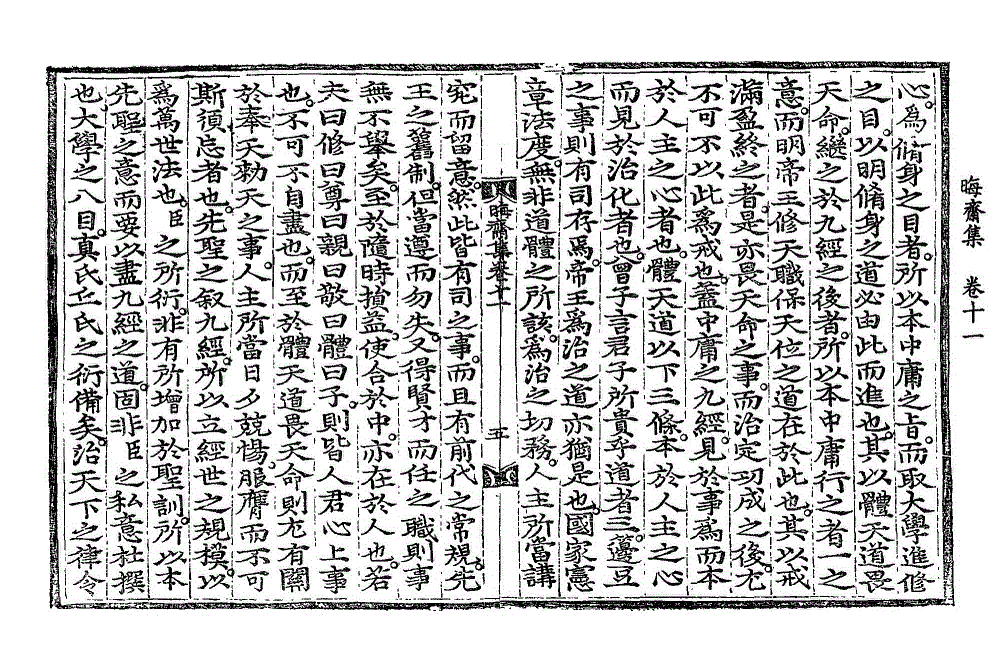 晦齋集 卷十一
心。爲脩身之目者。所以本中庸之旨。而取大學進修
之目。以明脩身之道必由此而進也。其以體天道畏
天命。繼之於九經之後者。所以本中庸行之者一之
意。而明帝王修天職保天位之道在於此也。其以戒
滿盈終之者。是亦畏天命之事。而治定功成之後。尤
不可不以此爲戒也。蓋中庸之九經。見於事爲而本
於人主之心者也。體天道以下三條。本於人主之心
而見於治化者也。曾子言君子所貴乎道者三。籩豆
之事則有司存焉。帝王爲治之道亦猶是也。國家憲
章法度。無非道體之所該。爲治之切務。人主所當講
晦齋集卷十一
五
究而留意。然此皆有司之事。而且有前代之常規。先
王之舊制。但當遵而勿失。又得賢才而任之職。則事
無不擧矣。至於隨時損益。使合於中。亦在於人也。若
夫曰修曰尊曰親曰敬曰體曰子。則皆人君心上事
也。不可不自盡也。而至於體天道畏天命則尤有關
於奉天勑天之事。人主所當日夕兢惕。服膺而不可
斯須忘者也。先聖之叙九經。所以立經世之規模。以
爲萬世法也。臣之所衍。非有所增加於聖訓。所以本
先聖之意而要以盡九經之道。固非臣之私意杜撰
也。大學之八目。眞氏丘氏之衍備矣。治天下之律令